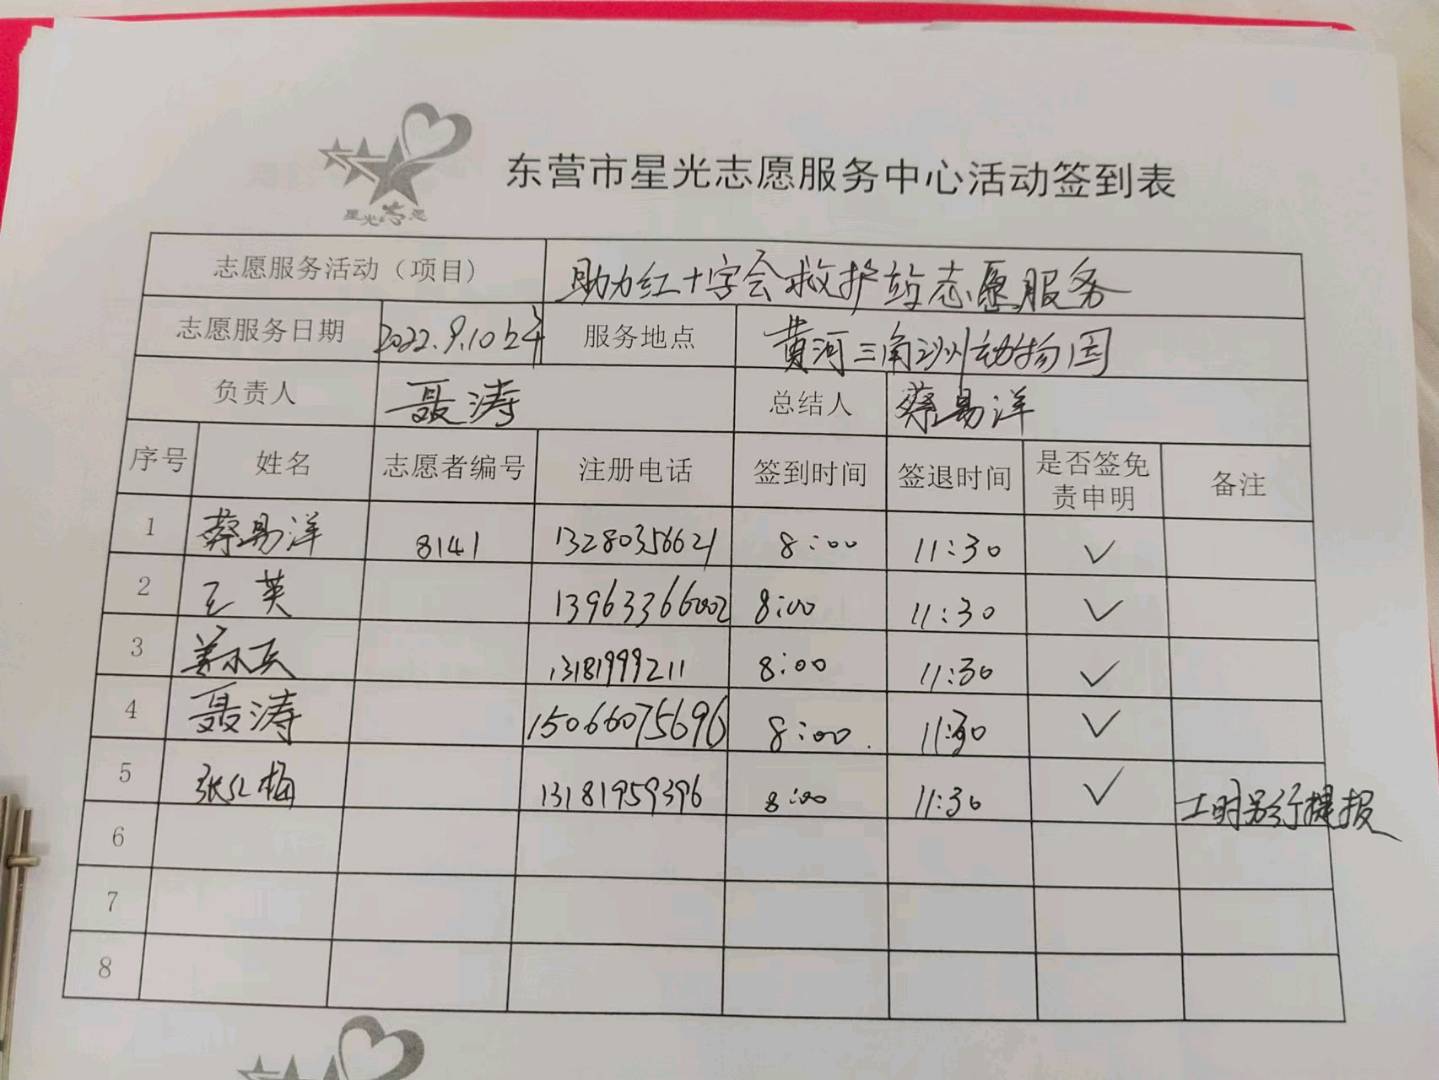 星光志愿
东营市星光志愿服务中心活动签到表
志愿服务活动（项目） 助力红十字会救护站志愿服务
志愿服务日期 2022.9.10上午 服务地点 黄河三角洲动物园
负责人 聂涛 总结人 蔡易洋
序号 姓名 志愿者编号 注册电话 签到时间 签退时间 是否签免责申明 备注
1 蔡易洋 8141 13280356621 8:00 11:30 ✓
2 王英 13963366002 8:00 11:30 ✓
3 姜 13181999211 8:00 11:30 ✓
4 聂涛 15066075696 8:00 11:30 ✓
5 张红梅 13181959396 8:00 11:30 ✓ 工时另行提报
6
7
8